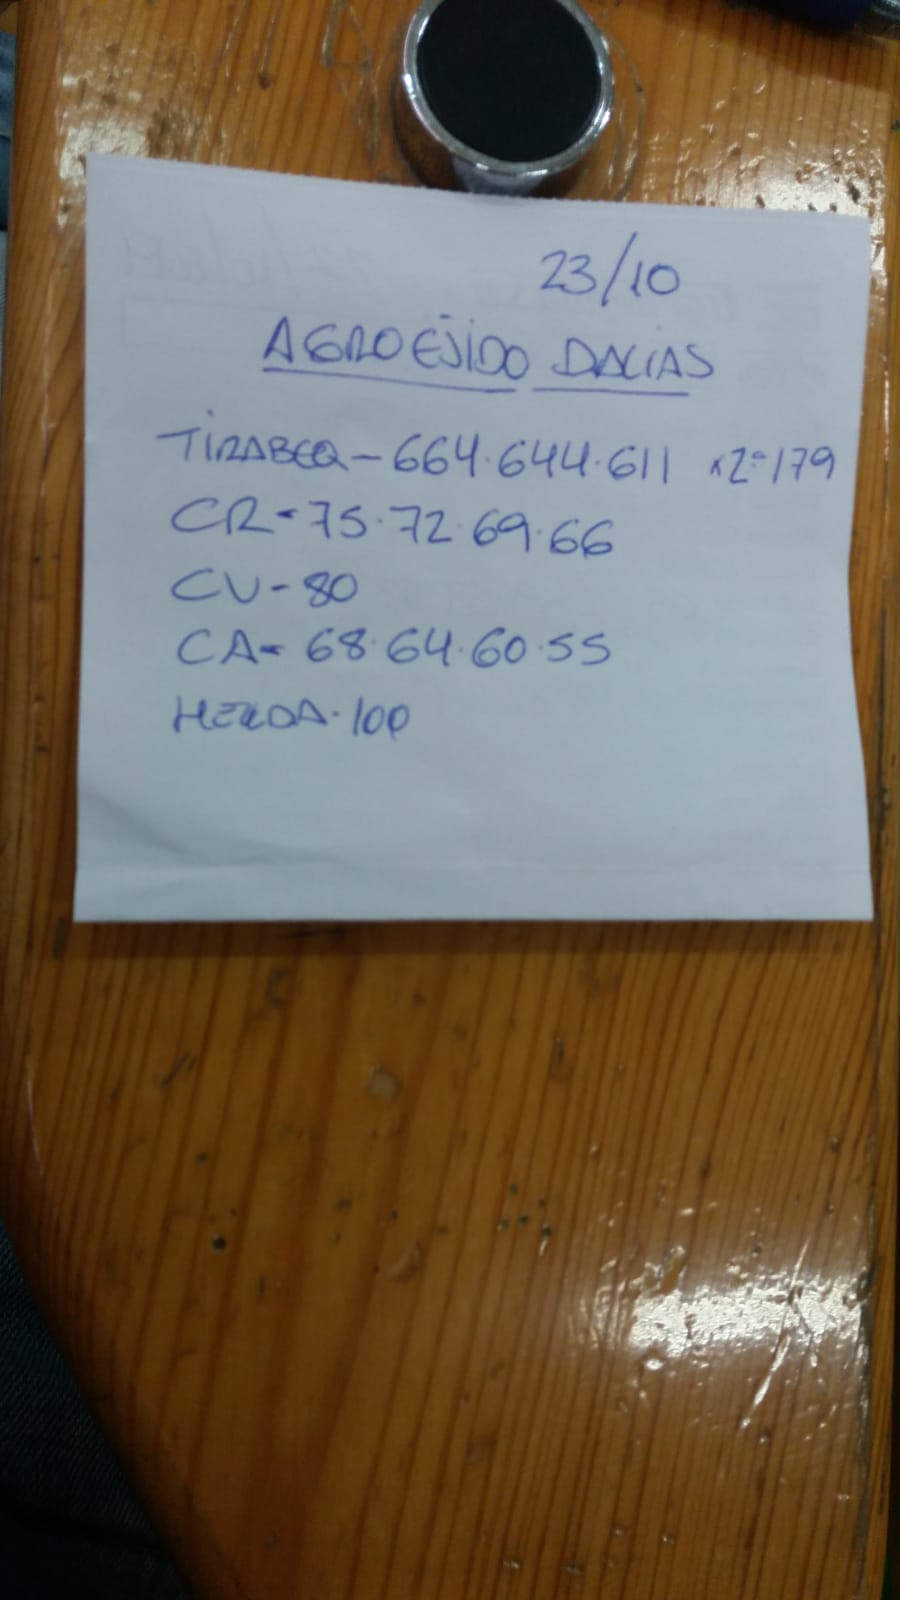 23/10
AGROEJIDO DALIAS
TIRABEQ - 664.644.611 x2ª 179
CR - 75.72.69.66
CU - 80
CA - 68.64.60.55
100